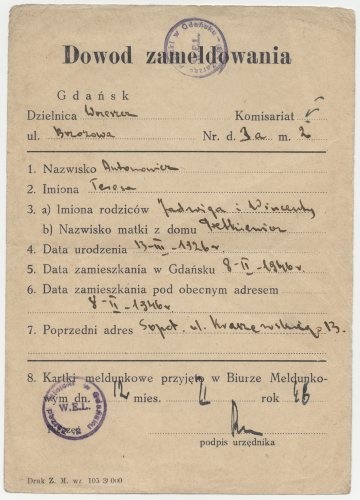 Dowod zameldowania
Gdańsk
Dzielnica Wrzeszcz Komisariat V
ul. Brzozowa Nr. d. 3a m. 2
1. Nazwisko Antonowicz
2. Imiona Teresa
3. a) Imiona rodziców Jadwiga i Wincenty
b) Nazwisko matki z domu
4. Data urodzenia 13-III-1926 r
5. Data zamieszkania w Gdańsku 8-II-1946 r.
6. Data zamieszkania pod obecnym adresem
8-II-1946 r
7. Poprzedni adres Sopot, ul. Kraszewskiego 13.
8. Kartki meldunkowe przyjęte w Biurze Meldunko-
wym dn. 12 mies. 2 rok 46
W.E.L.
podpis urzędnika
Druk Z. M. wz. 105 000